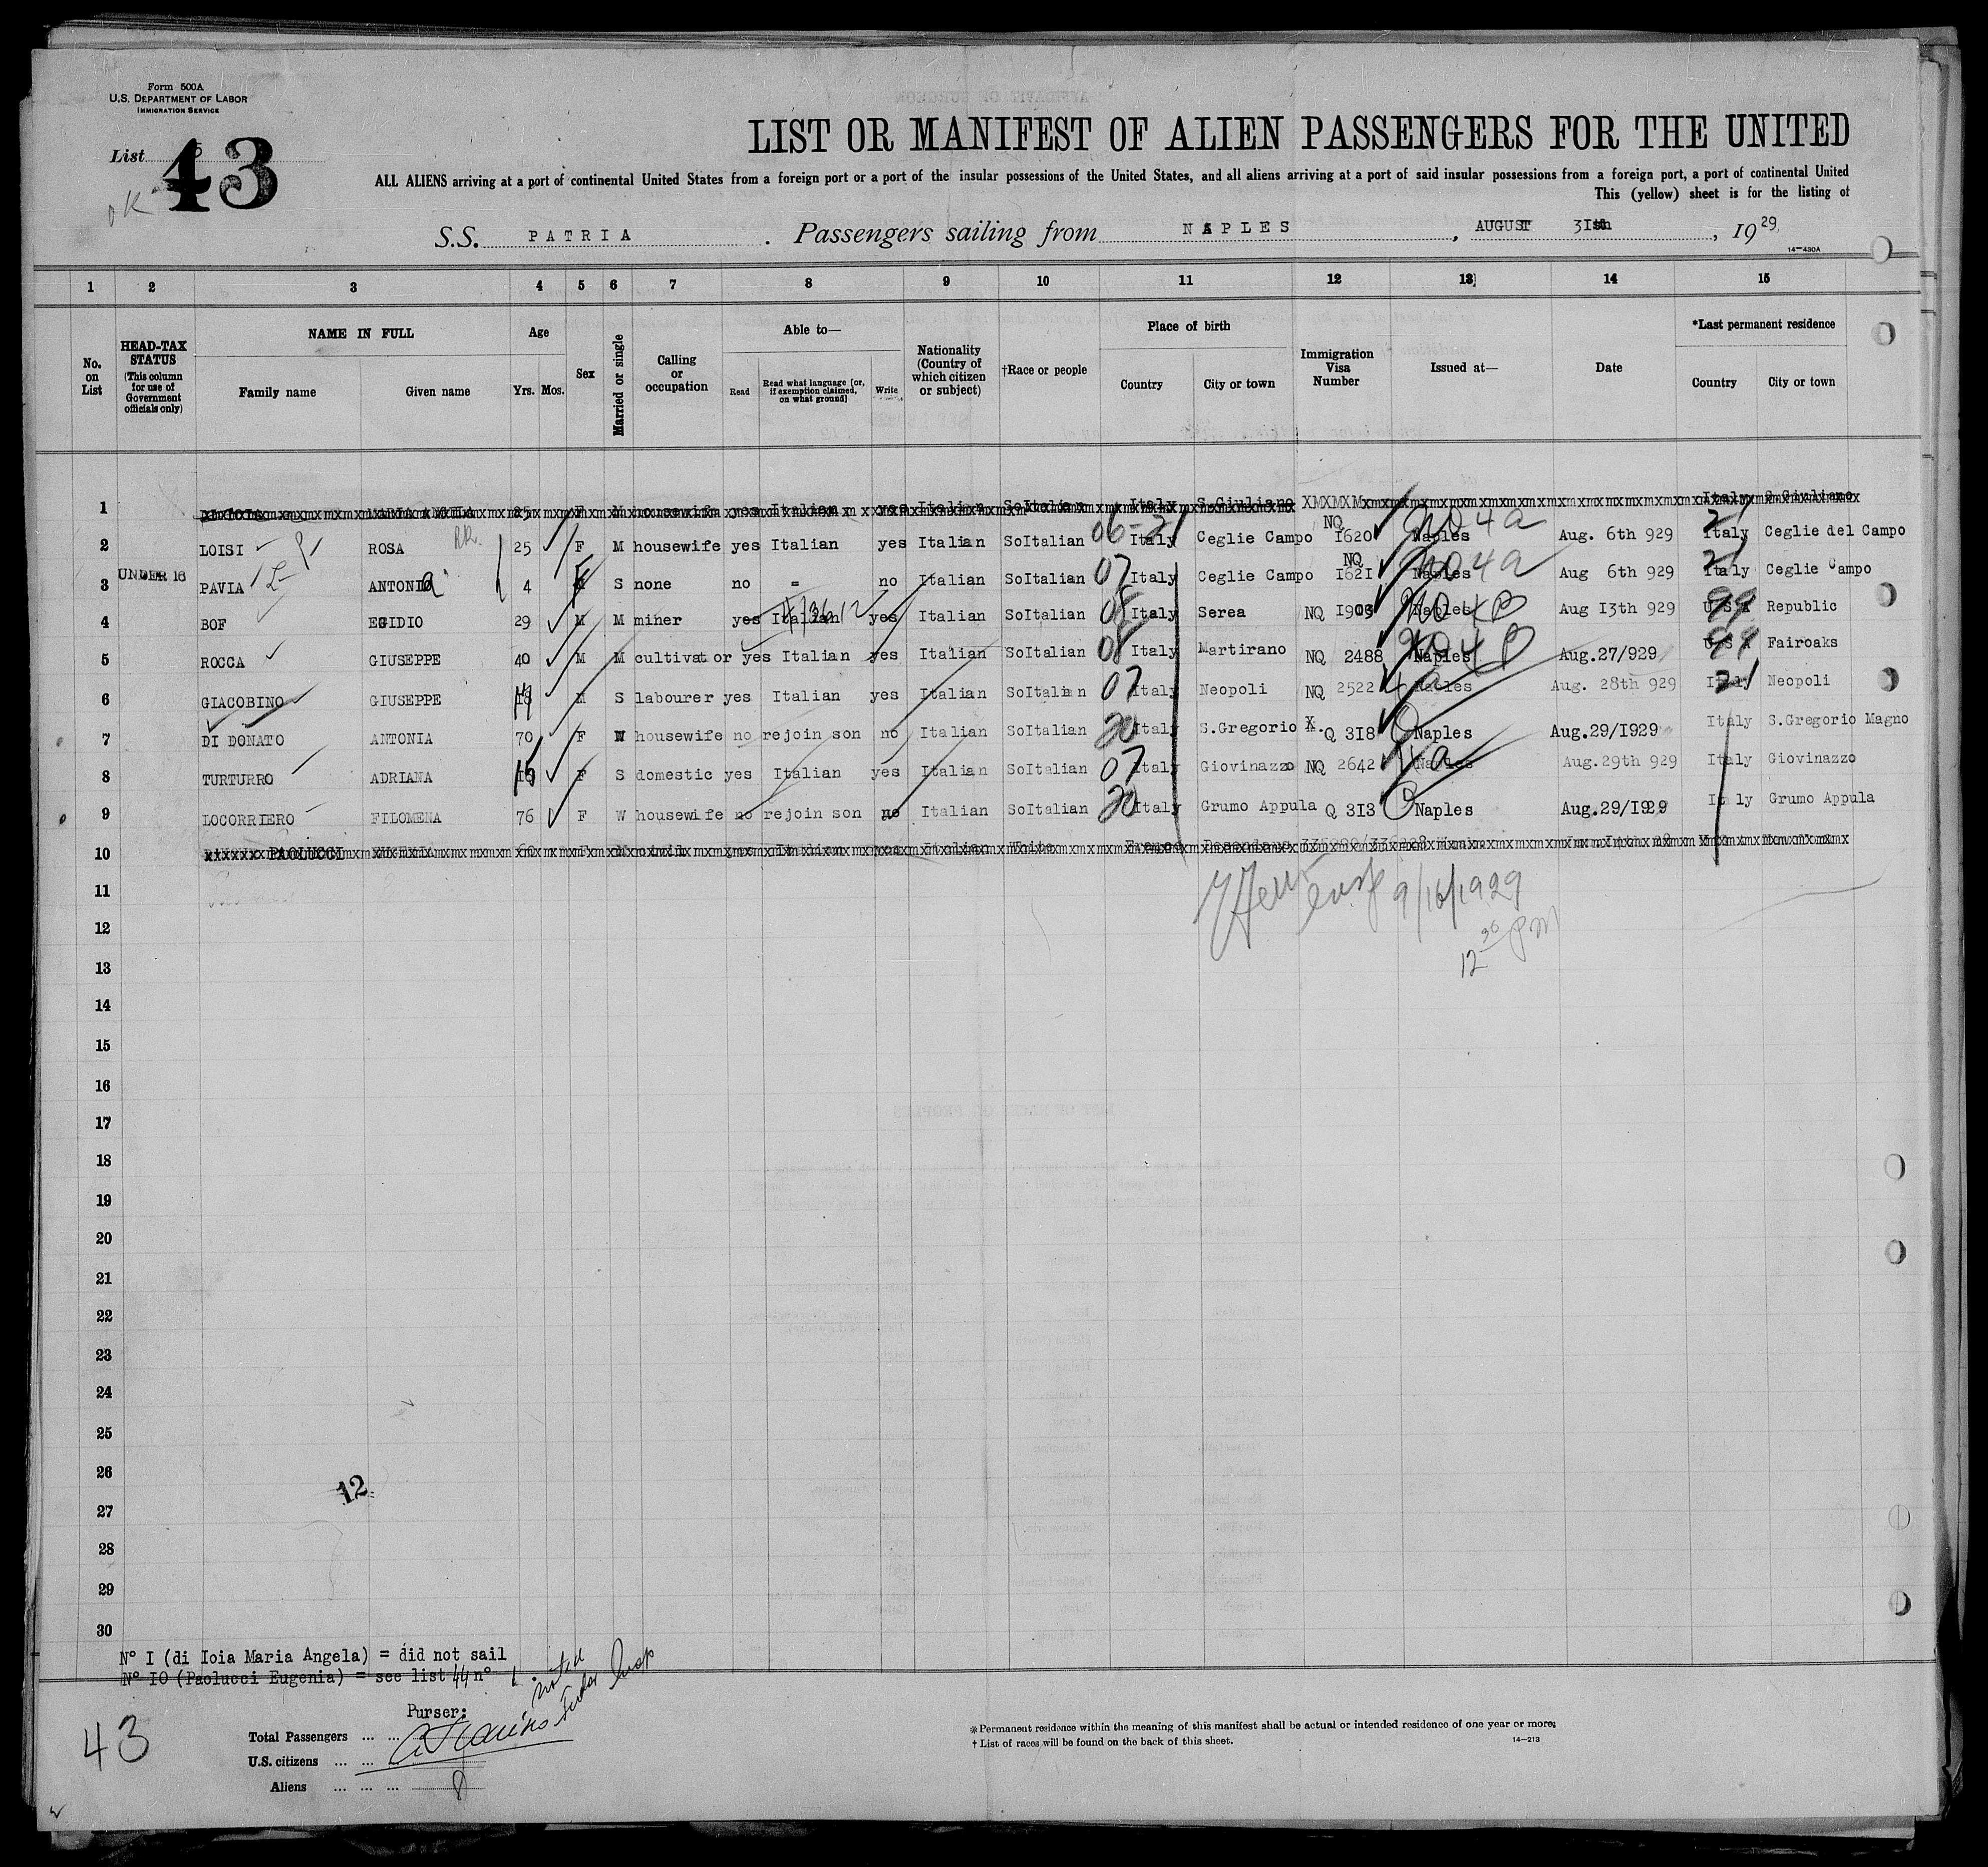 Form 500A
U.S. DEPARTMENT OF LABOR
IMMIGRATION SERVICE
List 43
OK
LIST OR MANIFEST OF ALIEN PASSENGERS FOR THE UNITED
ALL ALIENS arriving at a port of continental United States from a foreign port or a port of the insular possessions of the United States, and all aliens arriving at a port of said insular possessions from a foreign port, a port of continental United
This (yellow) sheet is for the listing of
S.S. PATRIA. Passengers sailing from NAPLES, AUGUST 31st, 1929
14-430A
1 2 3 4 5 6 7 8 9 10 11 12 13 14 15
No. on List
HEAD-TAX STATUS (This column for use of Government officials only)
NAME IN FULL Family name Given name
Age Yrs. Mos.
Sex
Married or single
Calling or occupation
Able to— Read Read what language [or, if exemption claimed, on what ground] Write
Nationality (Country of which citizen or subject)
†Race or people
Place of birth Country City or town
Immigration Visa Number
Issued at—
Date
*Last permanent residence Country City or town
1 25 F M housewife yes Italian yes Italian SoItalian Italy S.Giuliano Italy S.Giuliano
2 LOISI ROSA 25 F M housewife yes Italian yes Italian SoItalian 06-21 Italy Ceglie Campo NQ I620 Naples NQ 4a Aug. 6th 929 21 Italy Ceglie del Campo
3 UNDER 16 PAVIA ANTONIA 4 F S none no = no Italian SoItalian 07 Italy Ceglie Campo NQ I62I Naples NQ 4a Aug 6th 929 21 Italy Ceglie Campo
4 BOF EGIDIO 29 M M miner yes Italian yes Italian SoItalian 08 Italy Serea NQ I903 Naples NQ 4B Aug I3th 929 99 U S A Republic
5 ROCCA GIUSEPPE 40 M M cultivator yes Italian yes Italian SoItalian 08 Italy Martirano NQ 2488 Naples NQ 4B Aug.27/929 99 U S A Fairoaks
6 GIACOBINO GIUSEPPE M S labourer yes Italian yes Italian SoItalian 07 Italy Neopoli NQ 2522 Naples 4a Aug. 28th 929 21 Italy Neopoli
7 DI DONATO ANTONIA 70 F W housewife no rejoin son no Italian SoItalian 20 Italy S.Gregorio X. Q 3I8 Naples Aug.29/I929 Italy S.Gregorio Magno
8 TURTURRO ADRIANA F S domestic yes Italian yes Italian SoItalian 07 Italy Giovinazzo NQ 2642 Naples 4a Aug.29th 929 Italy Giovinazzo
9 LOCORRIERO FILOMENA 76 F W housewife no rejoin son no Italian SoItalian 20 Italy Grumo Appula Q 3I3 Naples Aug.29/I929 Italy Grumo Appula
10 PAOLUCCI
11
9/16/1929
12
12 30 PM
13
14
15
16
17
18
19
20
21
22
23
24
25
26
12
27
28
29
30
N° I (di Ioia Maria Angela) = did not sail
N° IO (Paolucci Eugenia) = see list 44 n°
noted
Insp
Purser:
43
Total Passengers ... ...
U.S. citizens ... ...
Aliens ... ... ... 8
*Permanent residence within the meaning of this manifest shall be actual or intended residence of one year or more.
† List of races will be found on the back of this sheet.
14-213